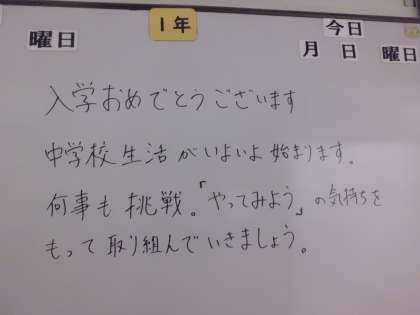 曜日 1年 今日
月 日 曜日
入学おめでとうございます
中学校生活がいよいよ始まります。
何事も挑戦。「やってみよう」の気持ちを
もって取り組んでいきましょう。